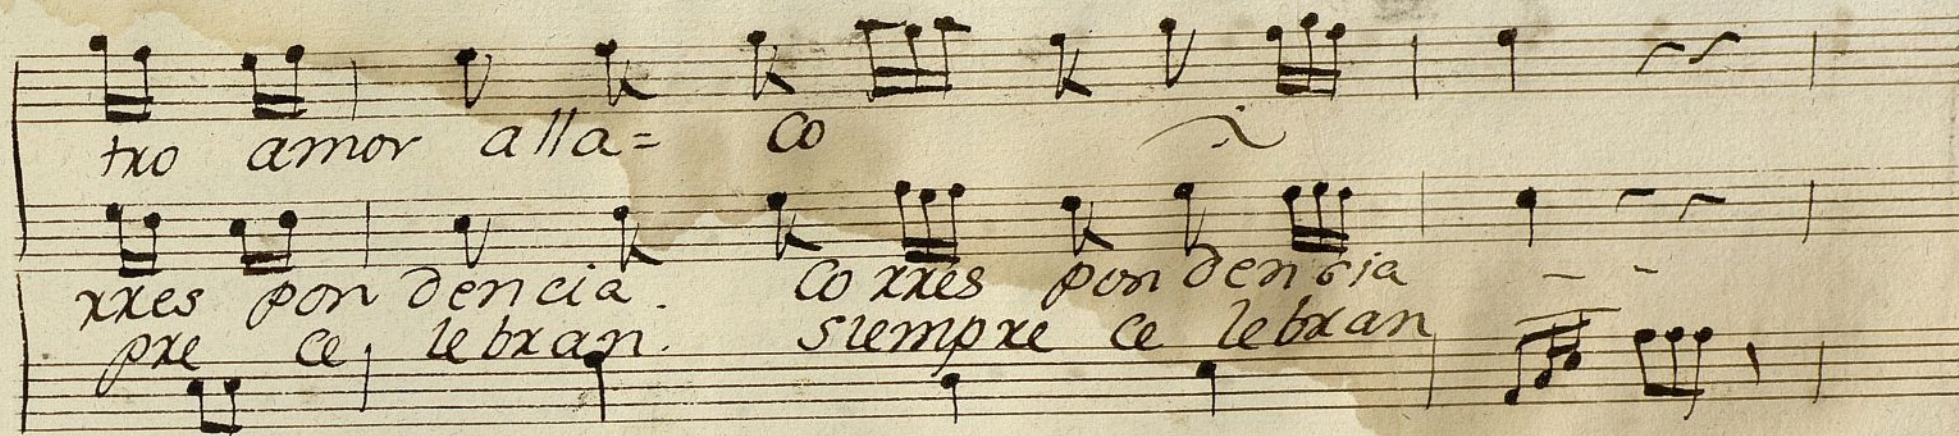 tro amor alla= co
rres pon dencia. Co rres pon dencia
pre ce lebran. siempre ce lebran